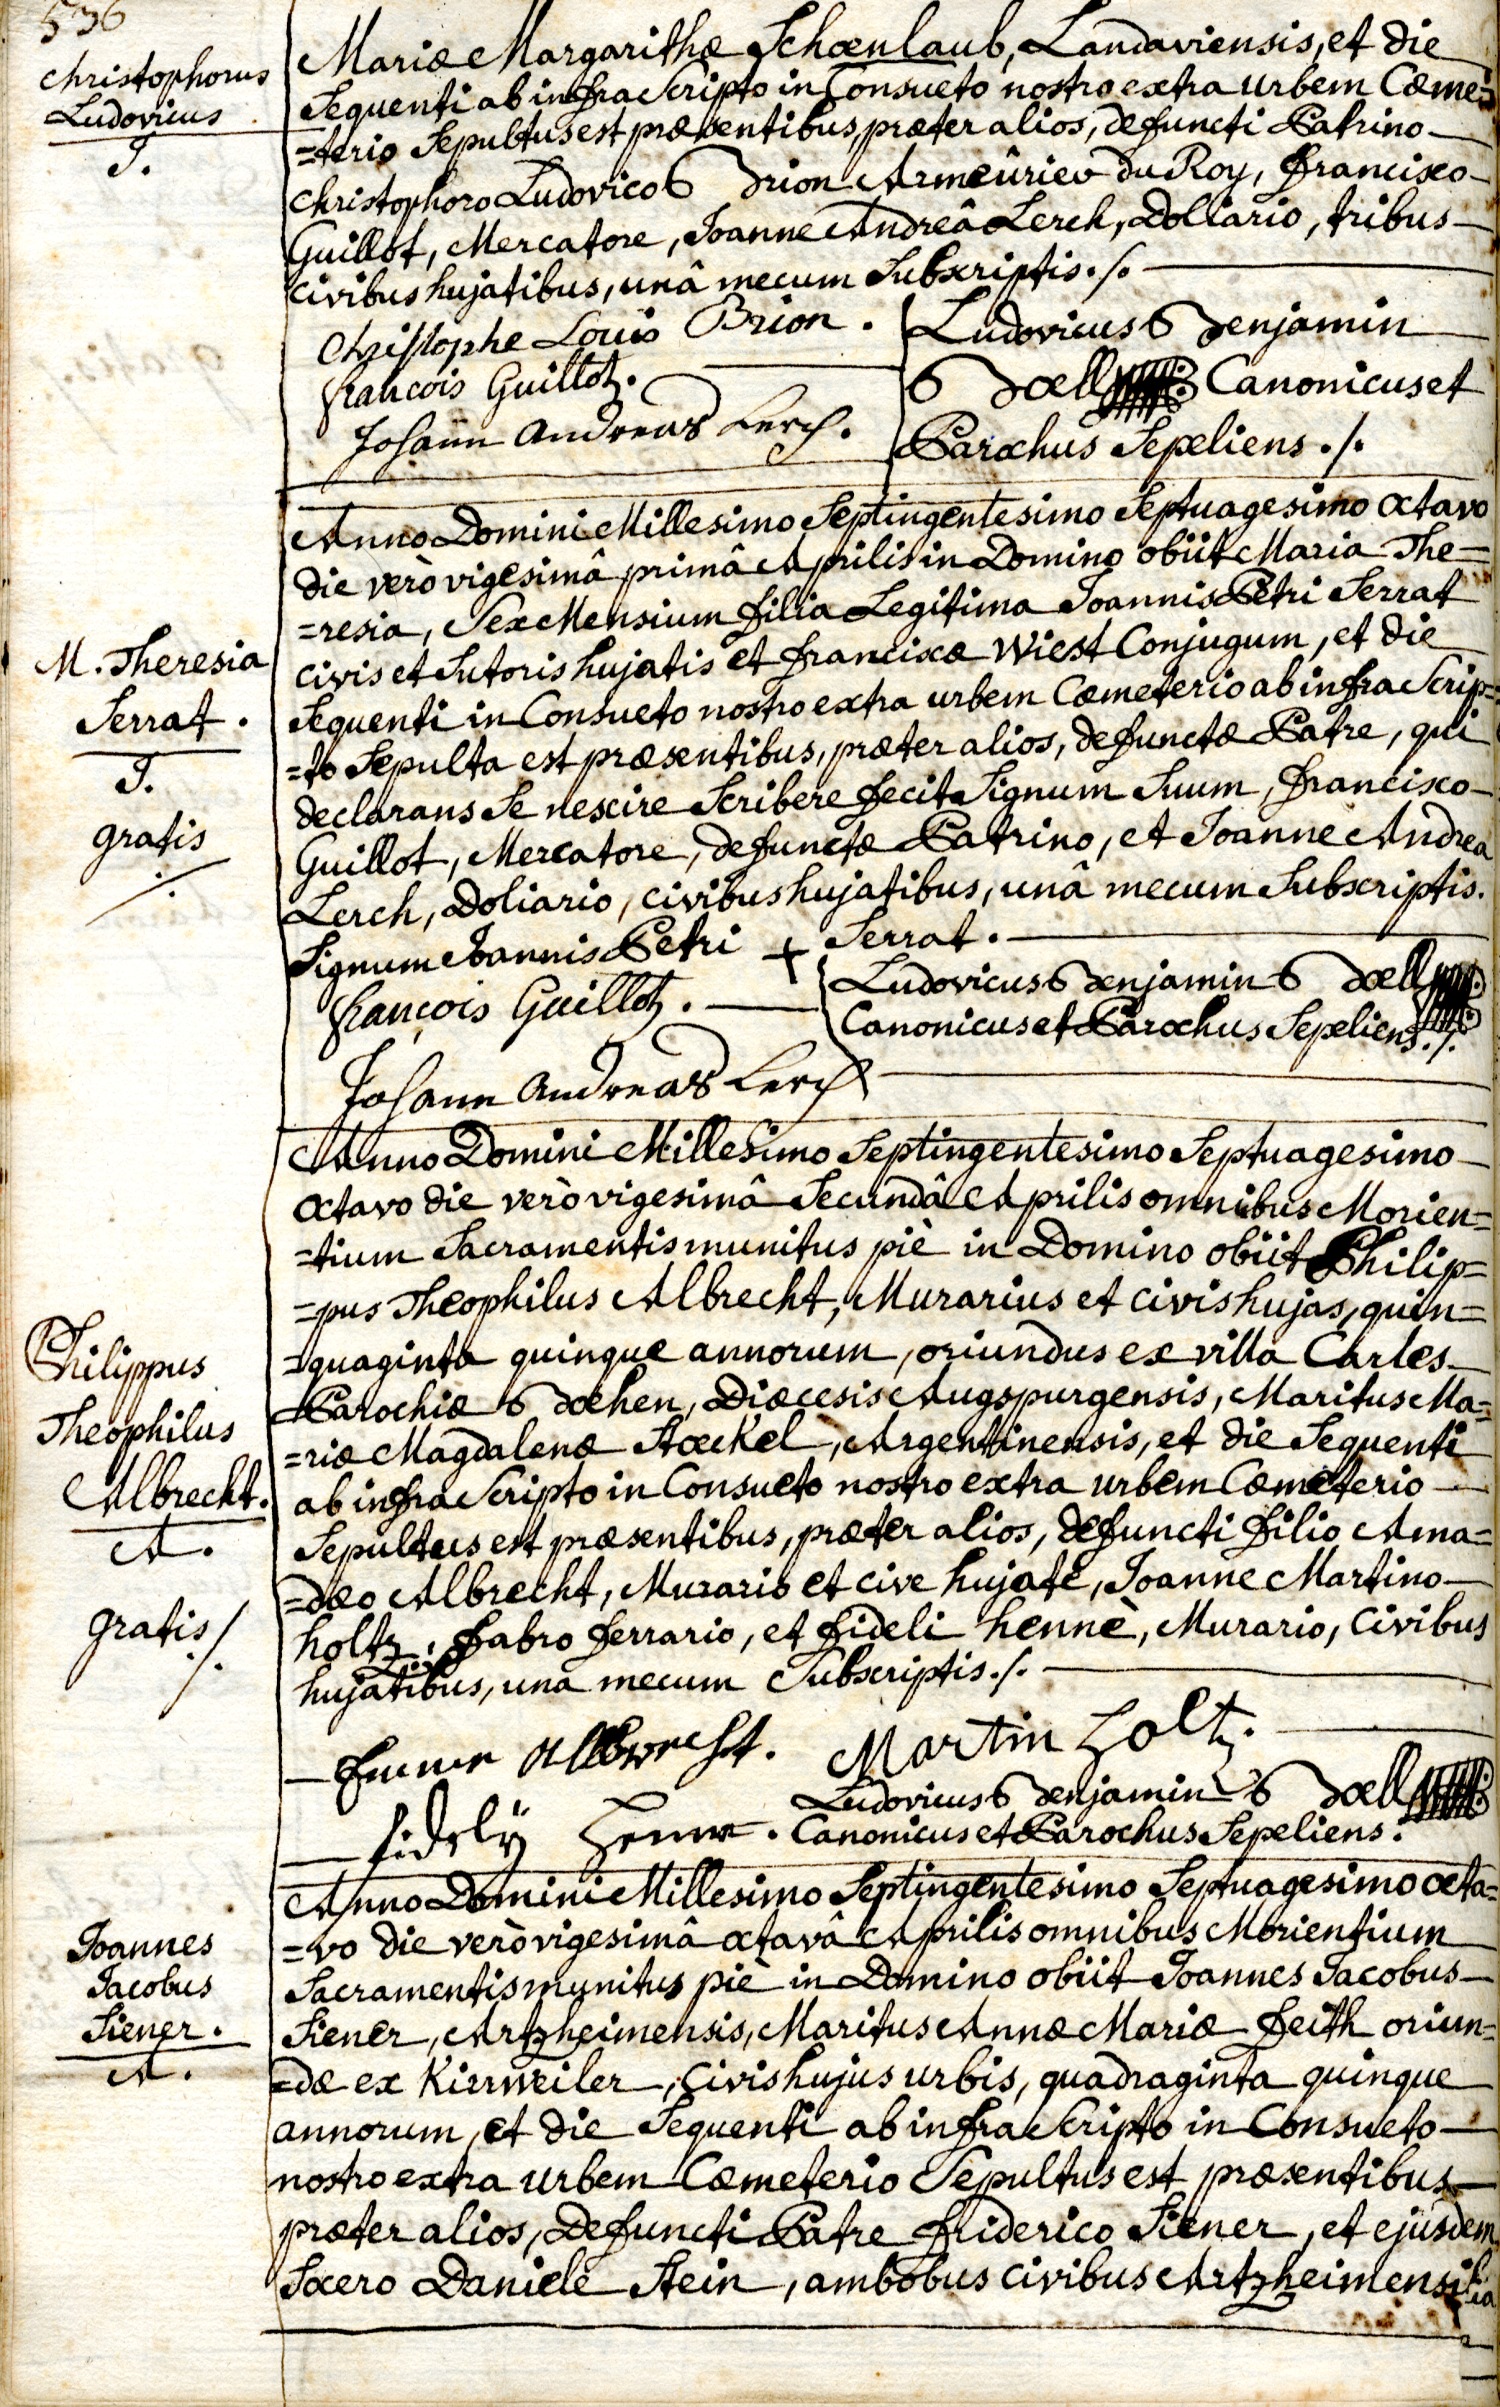 536
Christophorus
Ludovicus
J.
Mariæ Margarithæ Schœnlaub, Landaviensis, et die
Sequenti ab infra Scripto in Consueto nostro extra urbem Cœme=
=terio Sepultus est præsentibus, præter alios, defuncti Patrino
Christophoro Ludovico Brion Armeûrier du Roy, Francisco
Guillot, Mercatore, Joanne Andreâ Lerch, Dolliario, tribus
civibus hujatibus, unâ mecum Subscriptis./.
Christophe Louis Brion.
françois Guillot.
Johann Andreas Lerch.
Ludovicus Benjamin
Bœll Canonicus et
Parochus Sepeliens./.
Anno Domini Millesimo Septingentesimo Septuagesimo octavo
die verò vigesimâ primâ Aprilis in Domino obiit Maria The=
=resia, Sex Mensium filia Legitima Joannis Petri Serrat
civis et Sutoris hujatis et Franciscæ Wiest Conjugum, et die
Sequenti in Consueto nostro extra urbem Cœmeterio ab infra Scrip=
=to Sepulta est præsentibus, præter alios, defunctæ Patre, qui
declarans Se nescire Scribere fecit Signum Suum, Francisco
Guillot, Mercatore, defunctæ Patrino, et Joanne Andrea
Lerch, Doliario, civibus hujatibus, unâ mecum Subscriptis.
M. Theresia
Serrat.
J.
gratis
./.
Signum Joannis Petri + Serrat.
françois Guillot.
Johann Andreas Lerch
Ludovicus Benjamin Bœll
Canonicus et Parochus Sepeliens./.
Anno Domini Millesimo Septingentesimo Septuagesimo
octavo die verò vigesimâ Secundâ Aprilis omnibus Morien=
=tium Sacramentis munitus piè in Domino obiit Philip=
=pus Theophilus Albrecht, Murarius et civis hujas, quin=
=quaginta quinque annorum, oriundus ex villa Carles
Parochiæ Bœhen, Diœcesis Augspurgensis, Maritus Ma=
=riæ Magdalenæ Stœckel, Argentinensis, et die Sequenti
ab infra Scripto in Consueto nostro extra urbem Cœmeterio
Sepultus est præsentibus, præter alios, defuncti filio Ama=
=dæo Albrecht, Murario et cive hujate, Joanne Martino
holtz, fabro ferrario, et fideli hennè, Murario, Civibus
hujatibus, una mecum Subscriptis./.
Philippus
Theophilus
Albrecht.
A.
gratis
./.
Albrecht. Martin Holtz.
fidely Henne.
Ludovicus Benjamin Bœll
Canonicus et Parochus Sepeliens.
Anno Domini Millesimo Septingentesimo Septuagesimo octa=
=vo die verò vigesimâ octavâ Aprilis omnibus Morientium
Sacramentis munitus piè in Domino obiit Joannes Jacobus
Siener, Artzheimensis, Maritus Annæ Mariæ Feith oriun=
=dæ ex Kirrweiler, Civis hujus urbis, quadraginta quinque
annorum, et die Sequenti ab infra Scripto in Consueto
nostro extra urbem Cœmeterio Sepultus est præsentibus
præter alios, Defuncti Patre Friderico Siener, et ejusdem
Socero Daniele Stein, ambobus civibus Artzheimensibus
Joannes
Jacobus
Siener.
A.